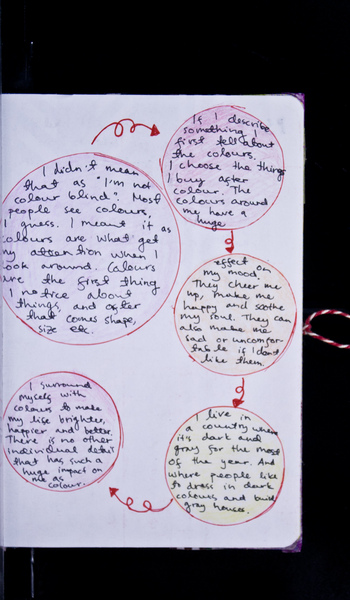 I didn't mean
that as "I'm not
colour blind". Most
people see colours,
I guess. I meant it as
colours are what get
my attention when I
look around. Colours
are the first thing
I notice about
things, and after
that comes shape,
size etc.
If I describe
something I
first tell about
the colours.
I choose the things
I buy after
colour. The
colours around
me have a
huge
effect on
my mood.
They cheer me
up, make me
happy and soothe
my soul. They can
also make me
sad or uncomfor-
table if I don't
like them.
I live in
a country where
it's dark and
gray for the most
of the year. And
where people like
to dress in dark
colours and build
gray houses.
I surround
myself with
colours to make
my life brighter,
happier and better.
There is no other
individual detail
that has such a
huge impact on
me as
colour.